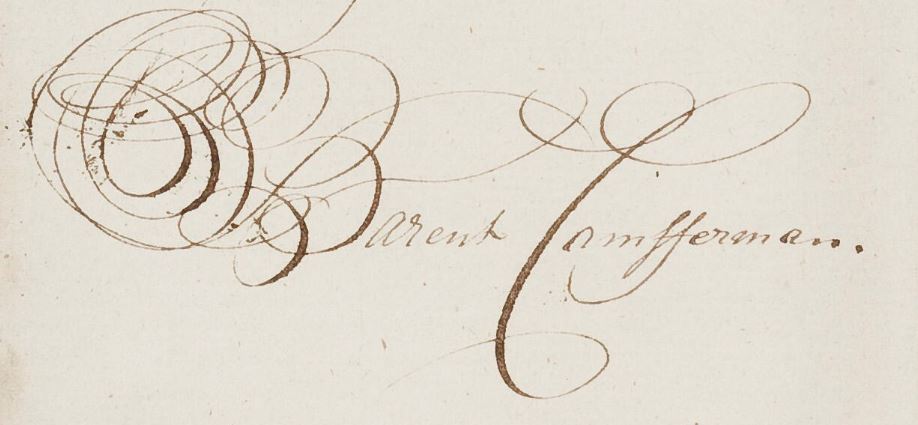 Barent Camfferman.